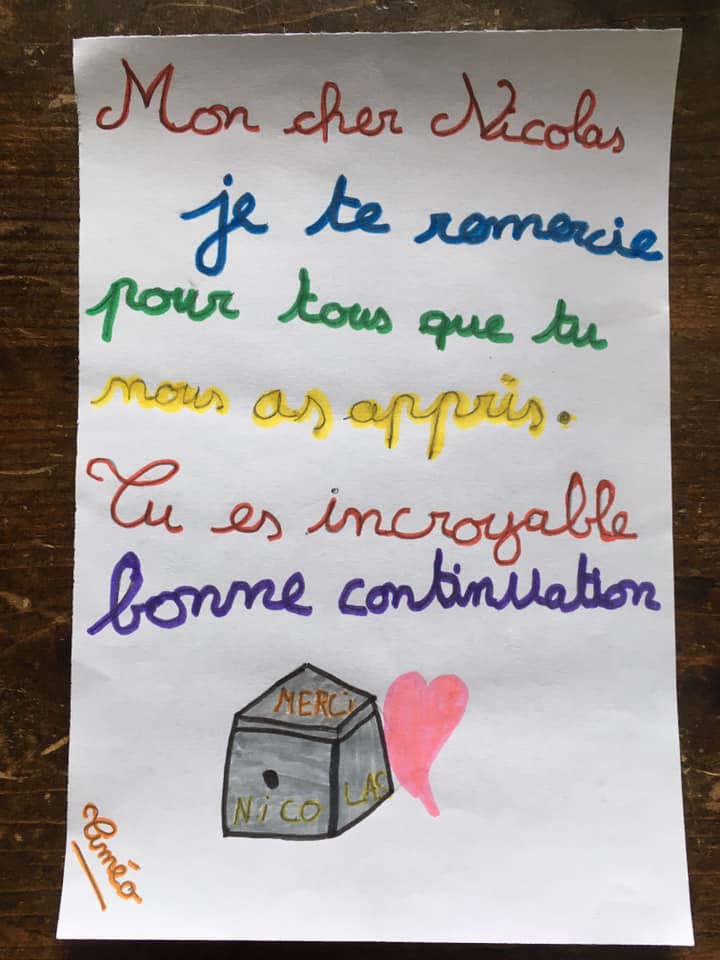 Mon cher Nicolas
je te remercie
pour tous que tu
nous as appris.
Tu es incroyable
bonne continuation
MERCi
NiCO LAS
Timéo